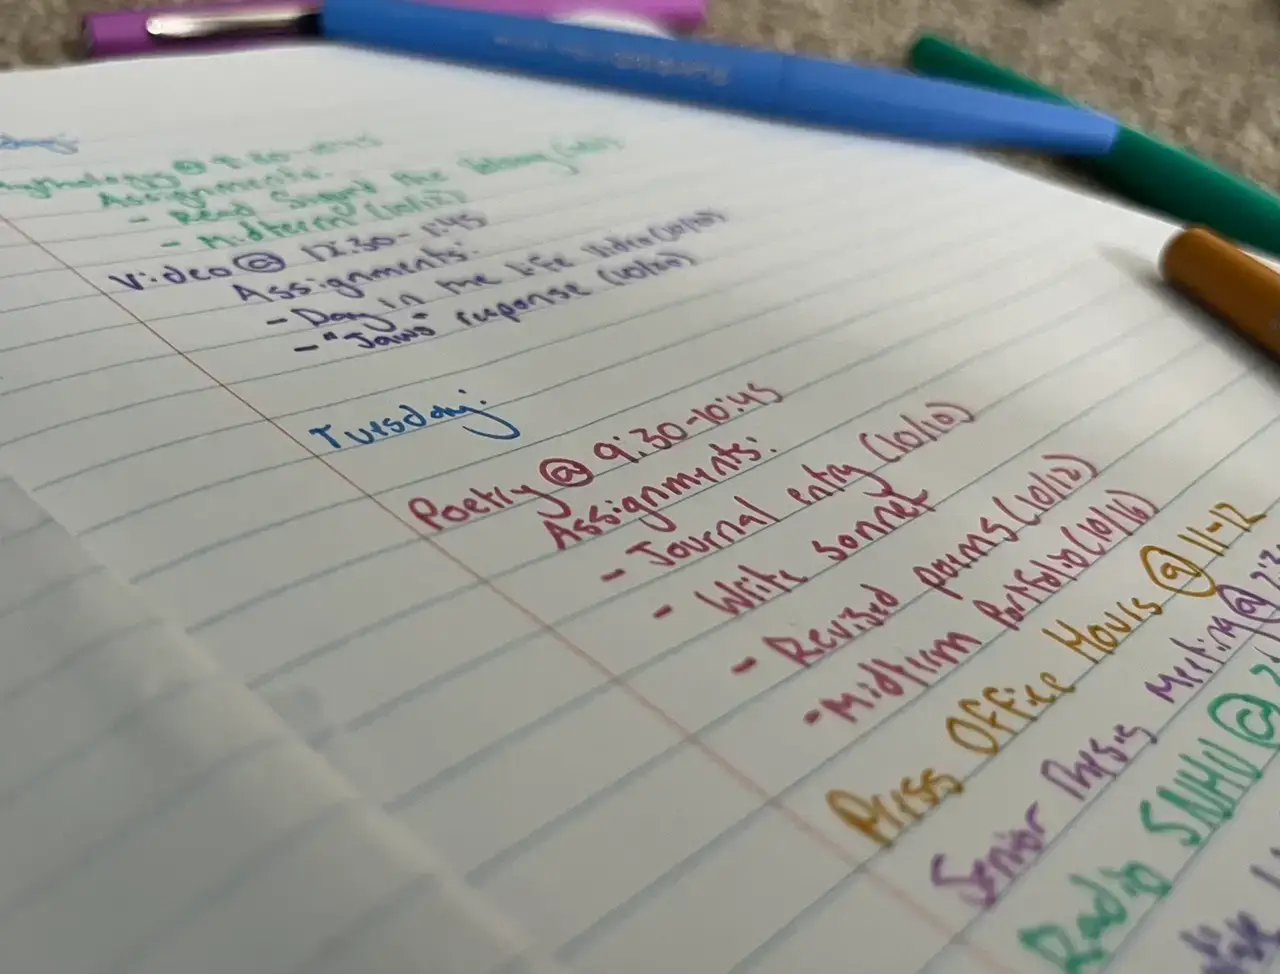 day:
Mythology @ 9:30-10:45
Assignments:
- Read
- Midterm (10/12)
Video @ 12:30-1:45
Assignments:
- Day in the life Video (10/20)
- "Jaws" response (10/20)
Tuesday:
Poetry @ 9:30-10:45
Assignments:
- Journal entry (10/10)
- Write sonnet
- Revised poems (10/12)
- Midterm Portfolio (10/16)
Press Office Hours @ 11-12
Senior Thesis Meeting @
Radio SNHU @